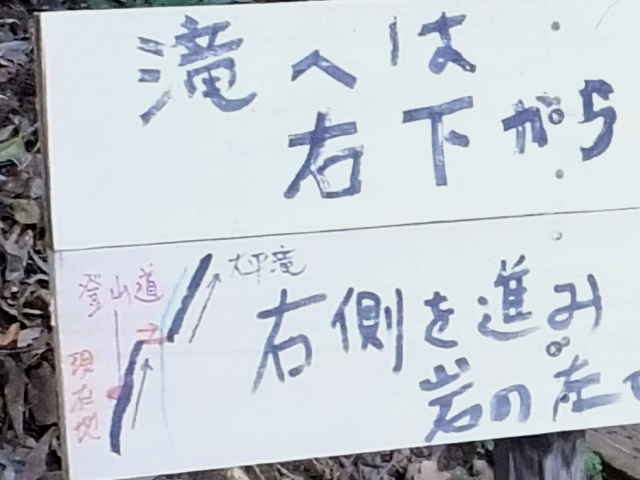 滝へは
右下から
大平滝
登山道
右側を進み
現在地
岩の左